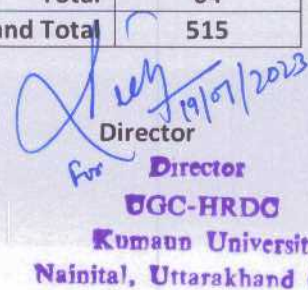 Total 64
and Total 515
19/07/2023
Director
For Director
UGC-HRDC
Kumaun Universit
Nainital, Uttarakhand